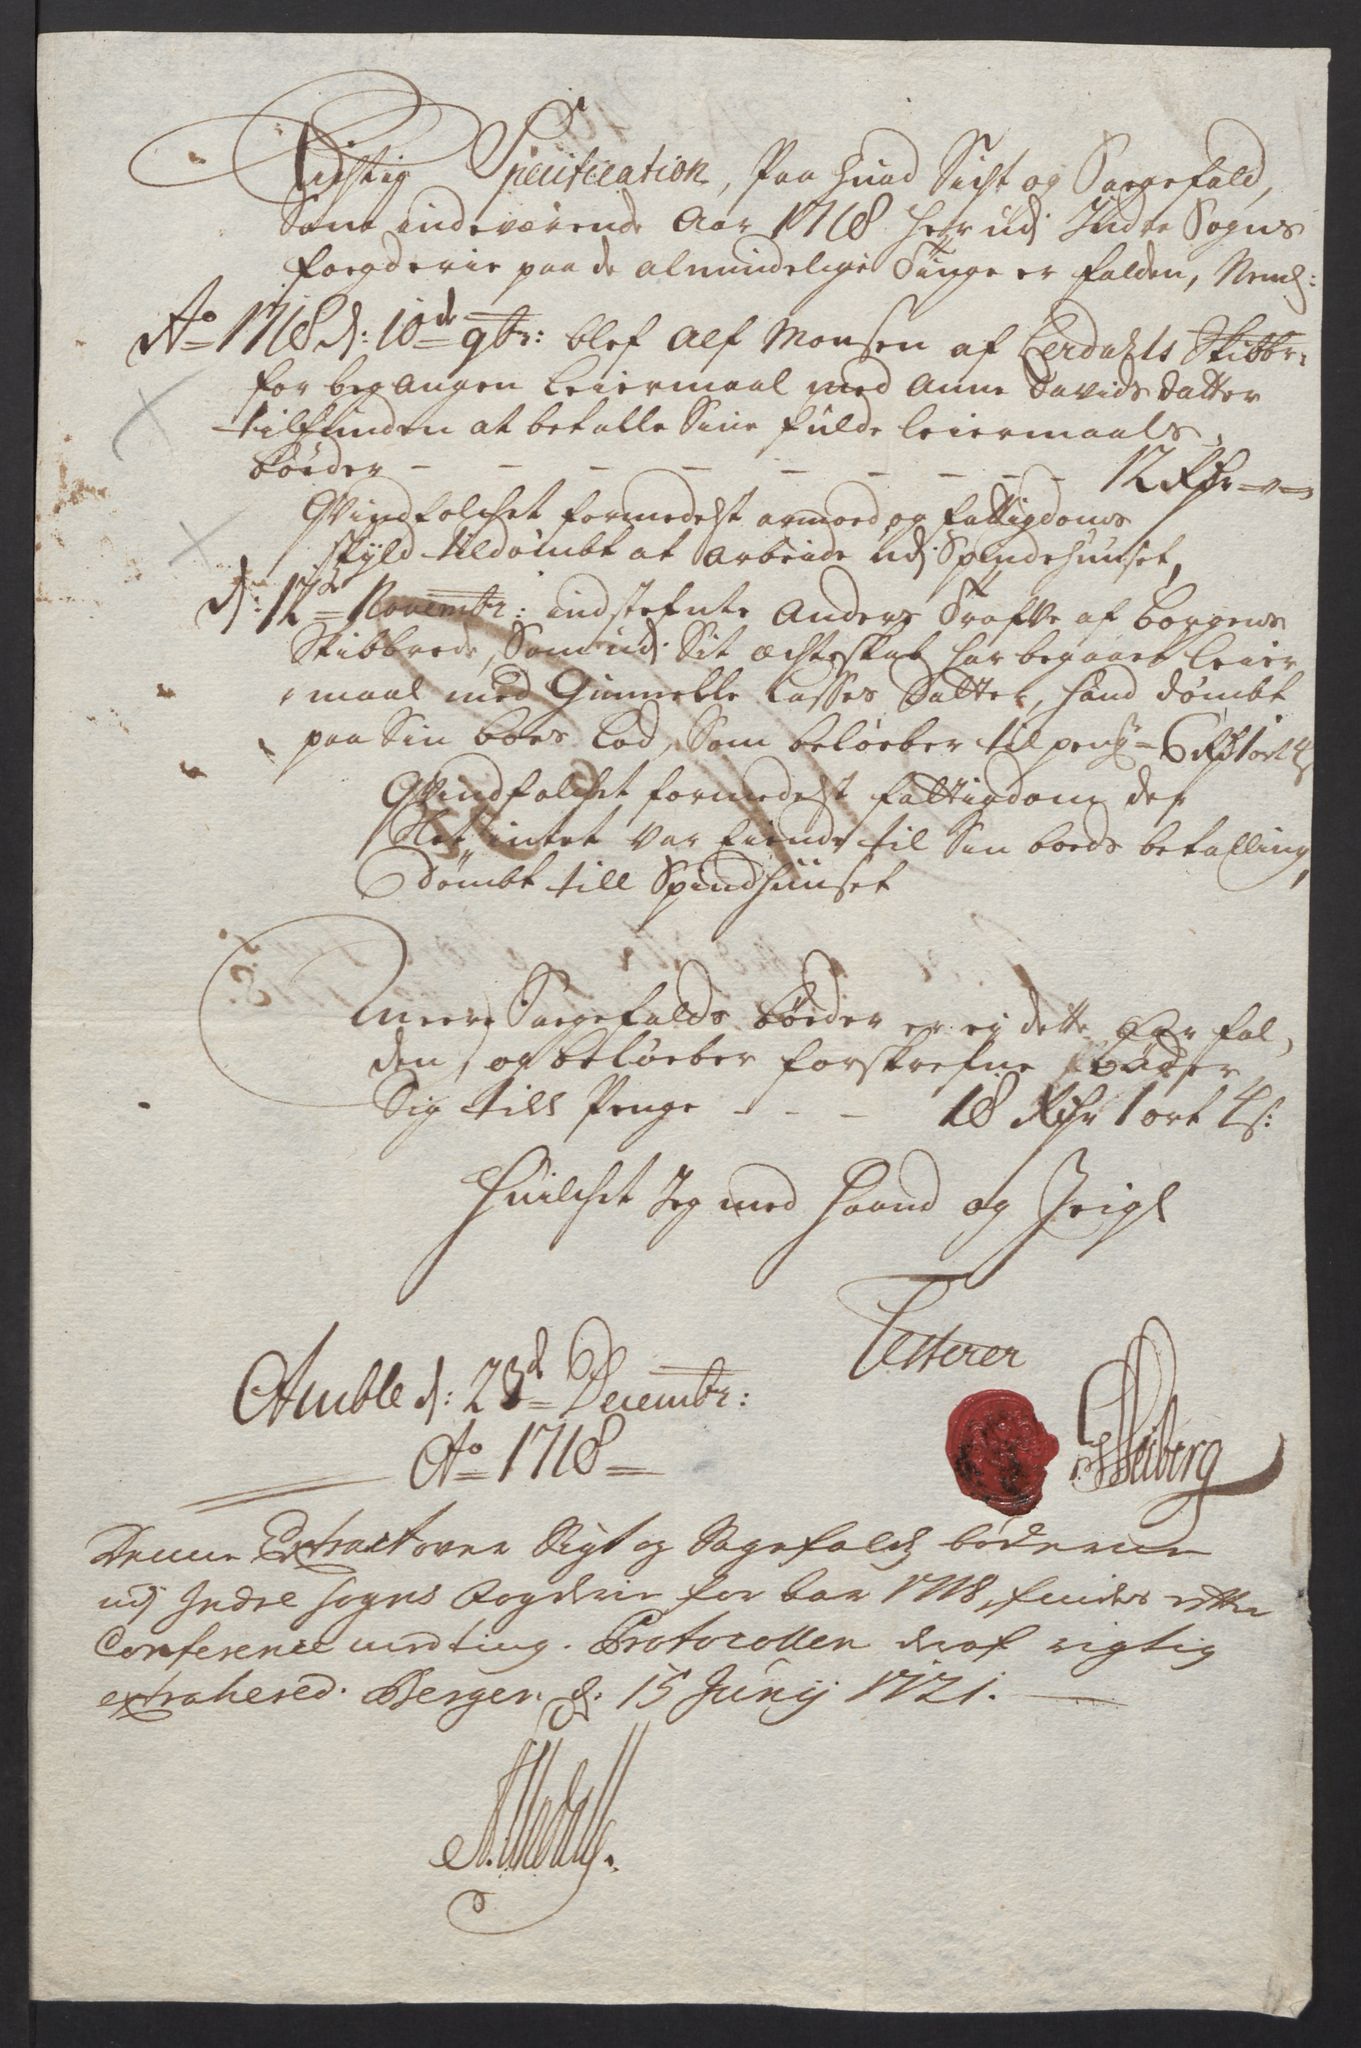 Rigtig Specification, Paa huad Sicht og Saegefald,
Som indeværende Aar 1718 her udj Indre Sogns
foegderie paa de almindelige Tinge er falden, Neml:
Ao 1718 d: 10de 9br: blef Alf Monsen af Lerdahls Skibbr:
for begangen Leiermaal med Anne Davids datter
tilfunden at betalle Sine fulde leiermaals,
bøeder - - - - - - - - 12 Rdr - „ -
Qvindfolchet formedelst armoed og fattigdoms
skyld tildømbt at arbeide udj Spindehuuset,
d: 12de Novembr: indstefnte Anders Trafve af Borgens
Skibbrede, Som udj Sit ægteskab har begaaet leier
maal med Gunnelle Lasses Datter, hand dømbt
paa Sin boes Lod, Som beløeber til peng - 6 Rd 1 ort 4 s
Qvindfolchet formedelst fattigdom der
Slet intet var Eiende til Sin boeds betalling,
Dømbt till Spindhuuset
Meere Saegefalds bøeder er ej dette Aar fal,
den, og beløeber forskrefne bøder
Sig till Penge - - - 18 Rdr 1 ort 4 s:
Huilchet Jeg med Haand og Seigl
Testerer
Amble d: 23de Decembr:
Ao 1718
Heiberg
Denne Extract over Sigt og Sagefalds bøderne
udj Indre Sogns fogderie for Aar 1718, findes efter
Conference med ting-Protocollen deraf rigtig
extrahered. Bergen d: 15 Junij 1721.